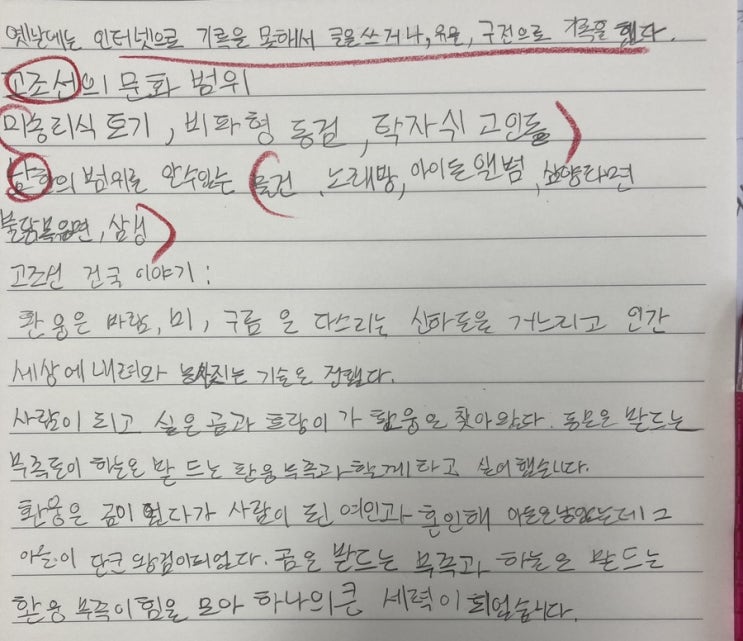 옛날에는 인터넷으로 기록을 못해서 글을쓰거나, 유물, 구전으로 기록을 했다.
고조선의 문화 범위
미송리식 토기, 비파형 동검, 탁자식 고인돌
남한의 범위를 알수있는 물건, 노래방, 아이돌 앨범, 삼양라면
불닭볶음면, 삼성
고조선 건국 이야기:
환웅은 바람, 비, 구름 을 다스리는 신하들을 거느리고 인간
세상에 내려와 농사짓는 기술을 전했다.
사람이 되고 싶은 곰과 호랑이 가 환웅을 찾아왔다. 동물을 받드는
부족들이 하늘을 받 드는 환웅 부족과 함께하고 싶어했습니다.
환웅은 곰이 었다가 사람이 된 여인과 혼인해 아들을낳았는데 그
아들이 단군 왕검이되었다. 곰을 받드는 부족과 하늘을 받드는
환웅 부족이힘을 모아 하나의큰 세력이 되었습니다.